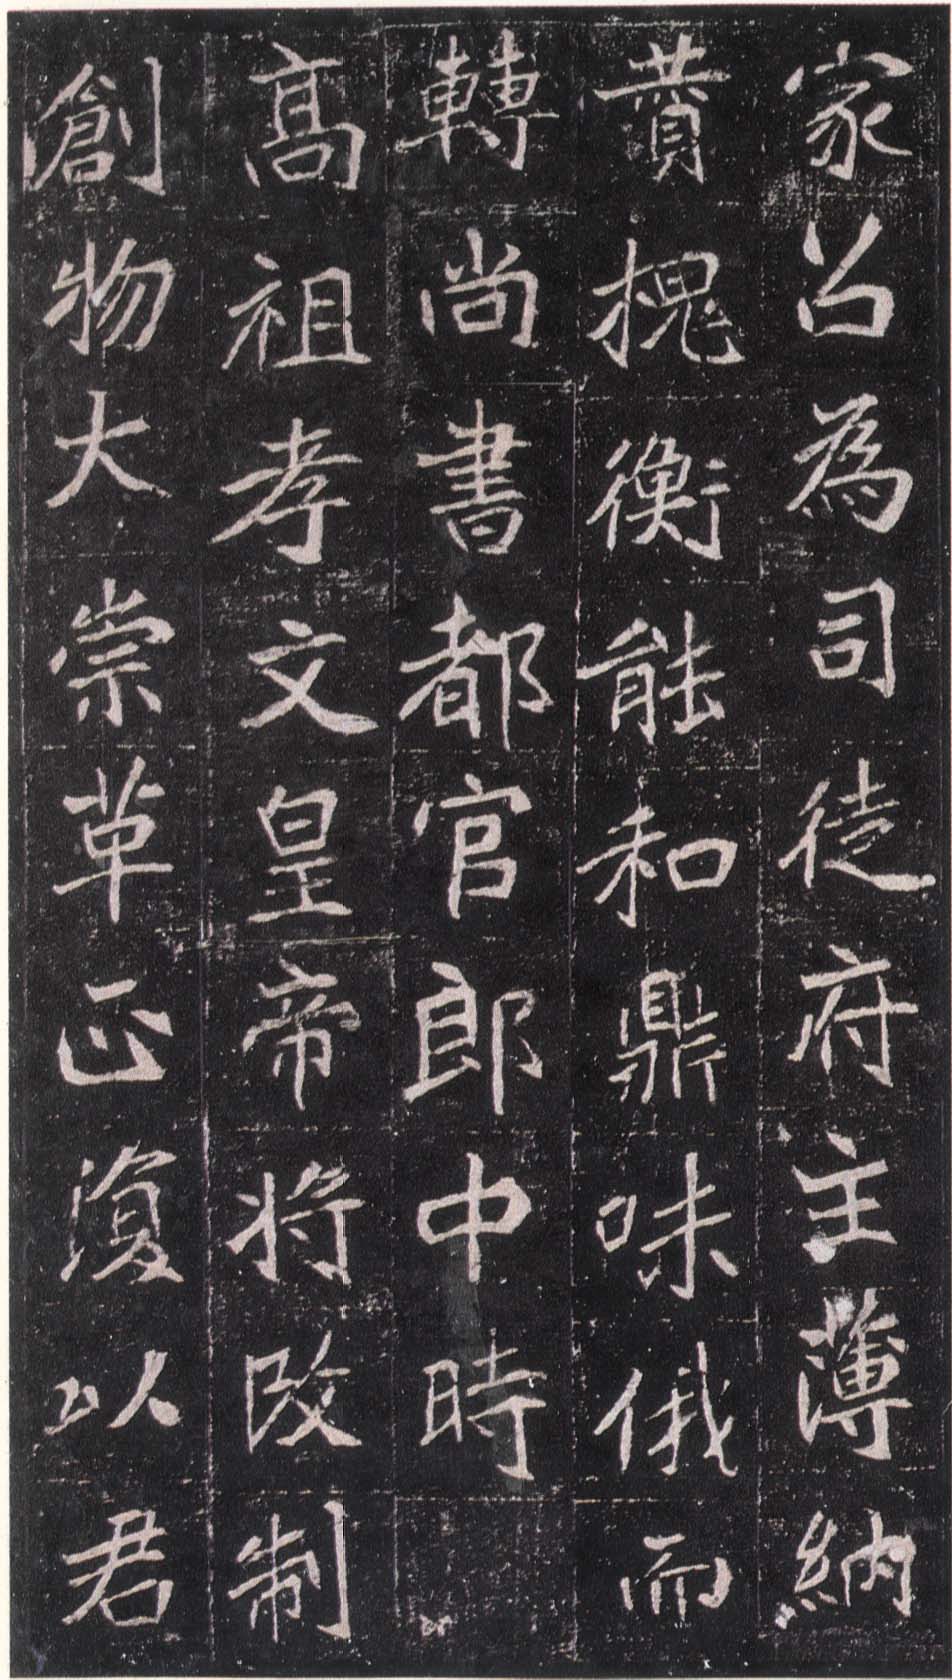 家召為司徒府主薄納
賛槐衡能和鼎味俄而
轉尚書都官郎中時
髙祖孝文皇帝將改制
創物大崇革正復以君